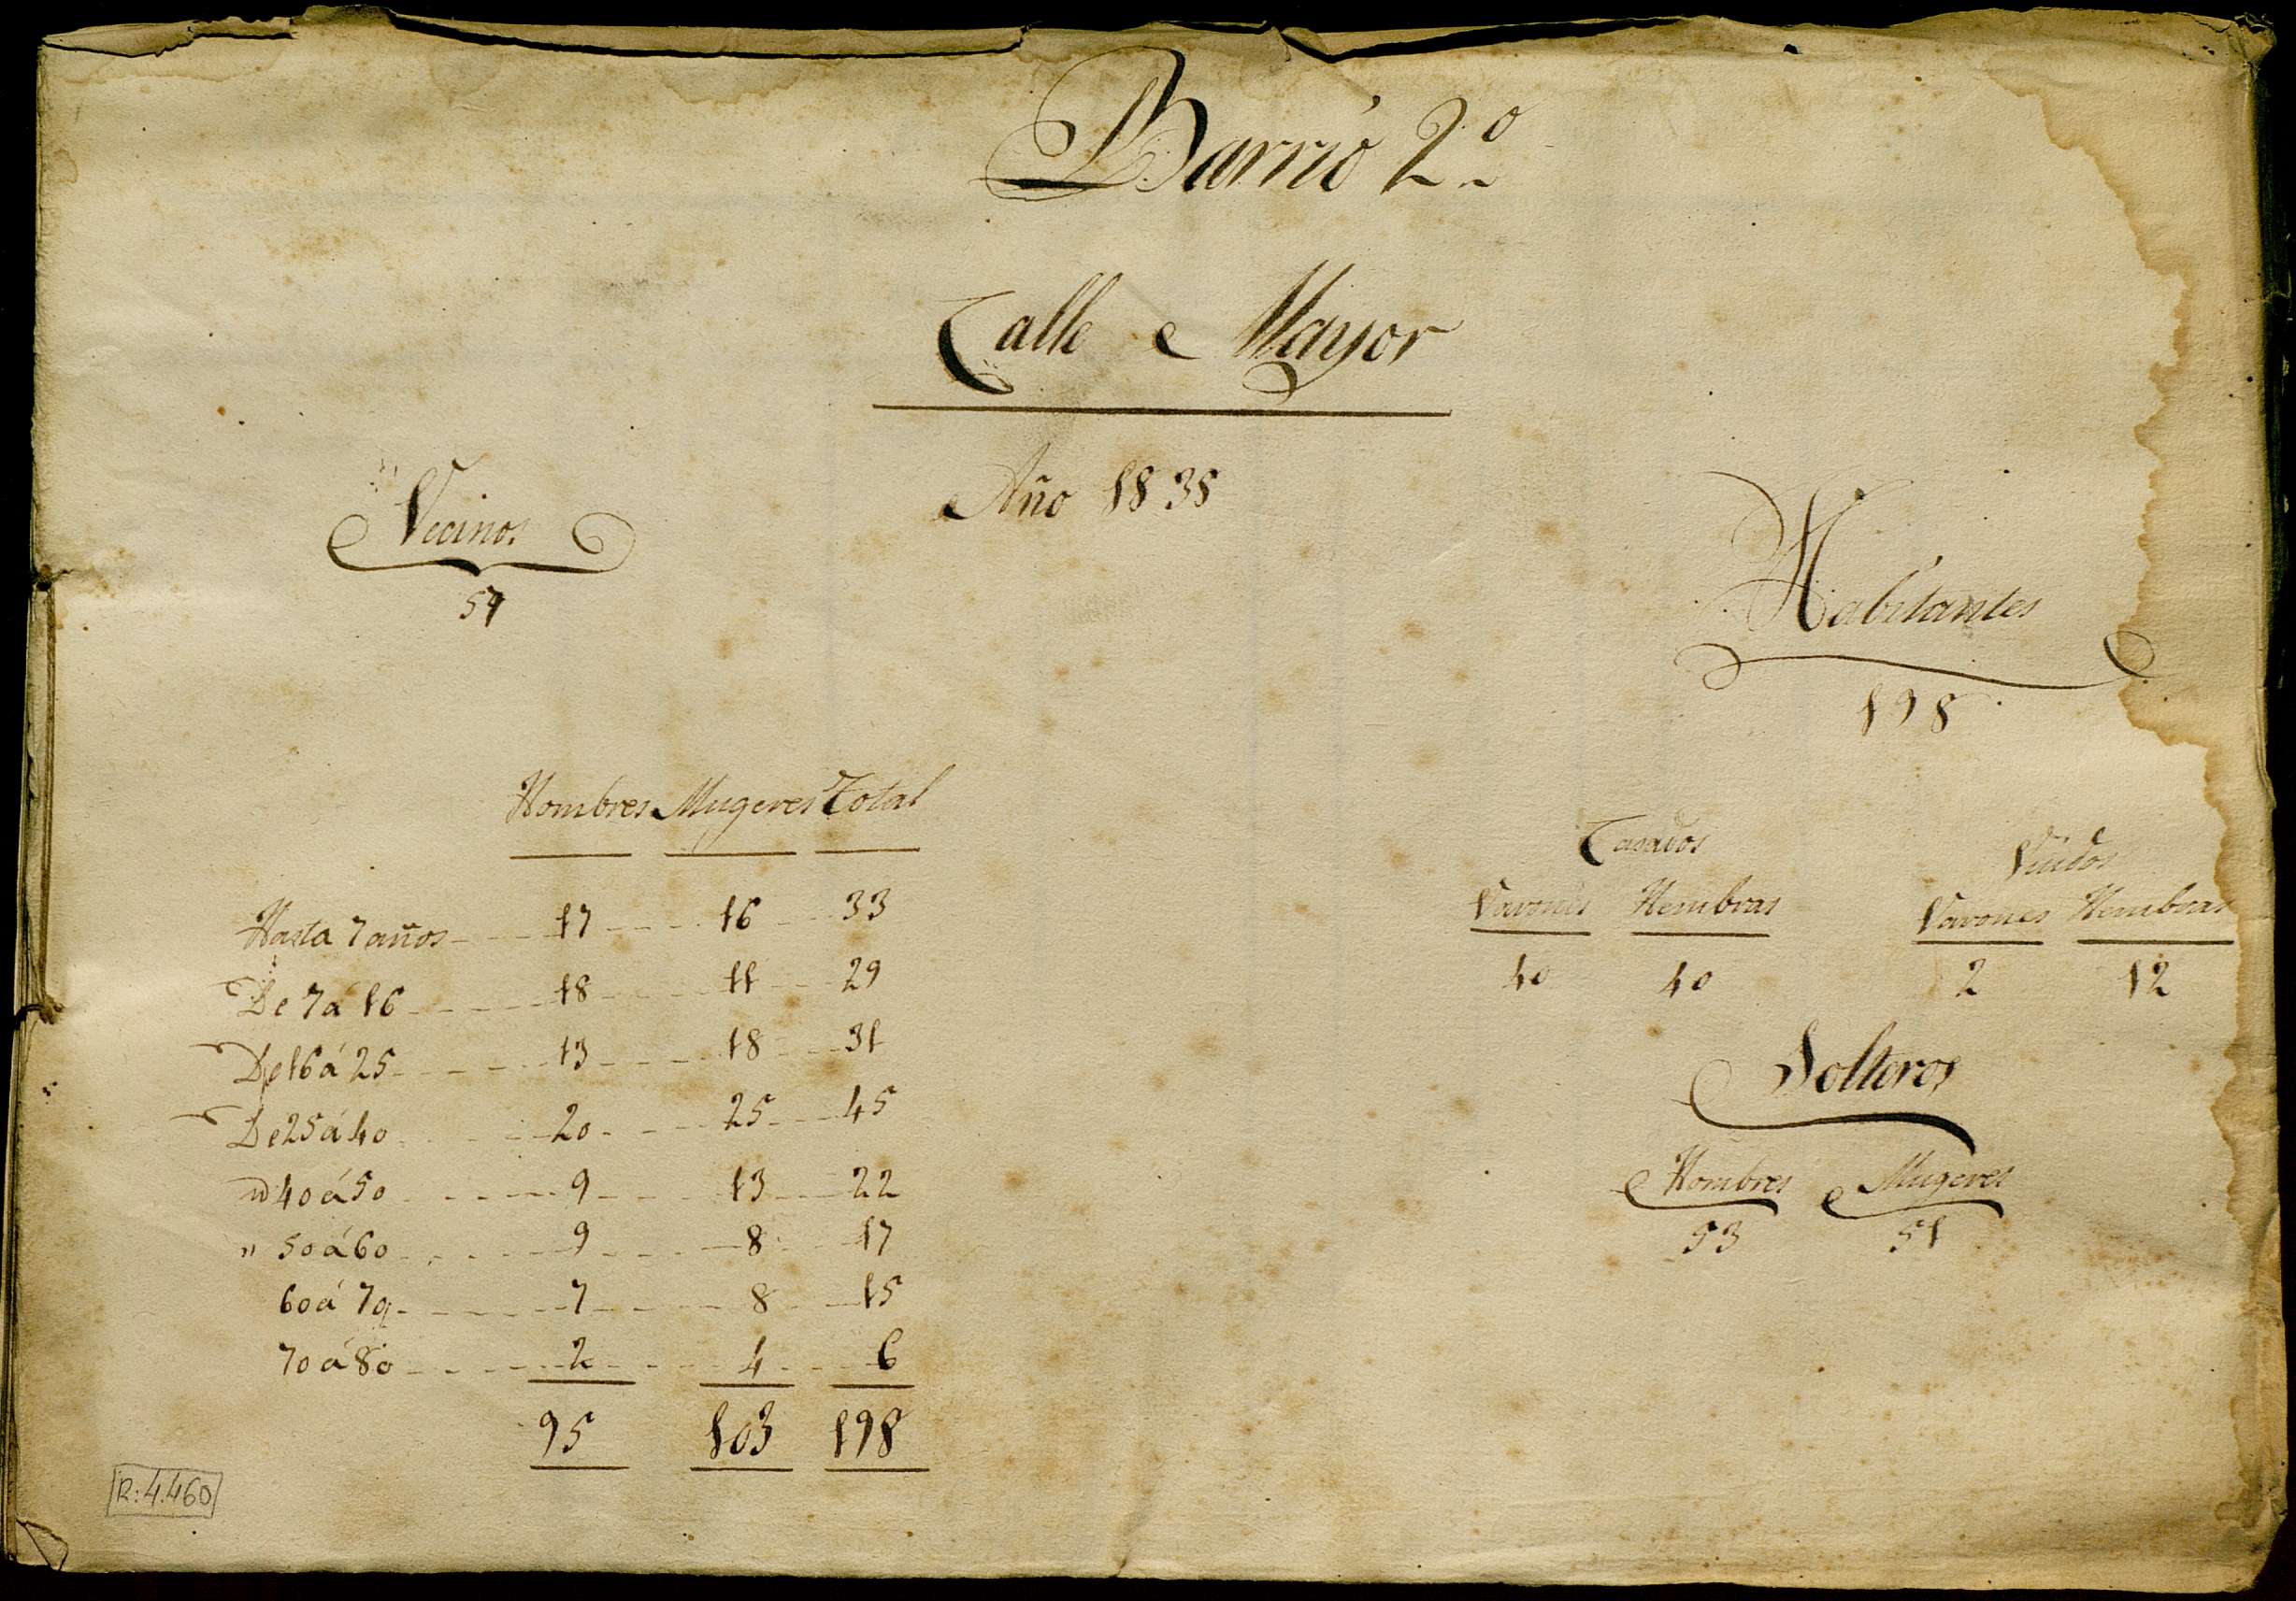 Barrio 2.º
Calle Mayor
Año 1835
Vecinos
Habitantes
198
Hombres Mugeres Total
Hasta 7 años 17 16 33
De 7 á 16 18 11 29
De 16 á 25 13 18 31
De 25 á 40 20 25 45
40 á 50 9 13 22
" 50 á 60 9 8 17
60 á 70 7 8 15
70 á 80 2 4 6
95 103 198
Casados
Varones Hembras
40 40
Viudos
Varones Hembras
2 12
Solteros
Hombres Mugeres
53 51
R: 4.460